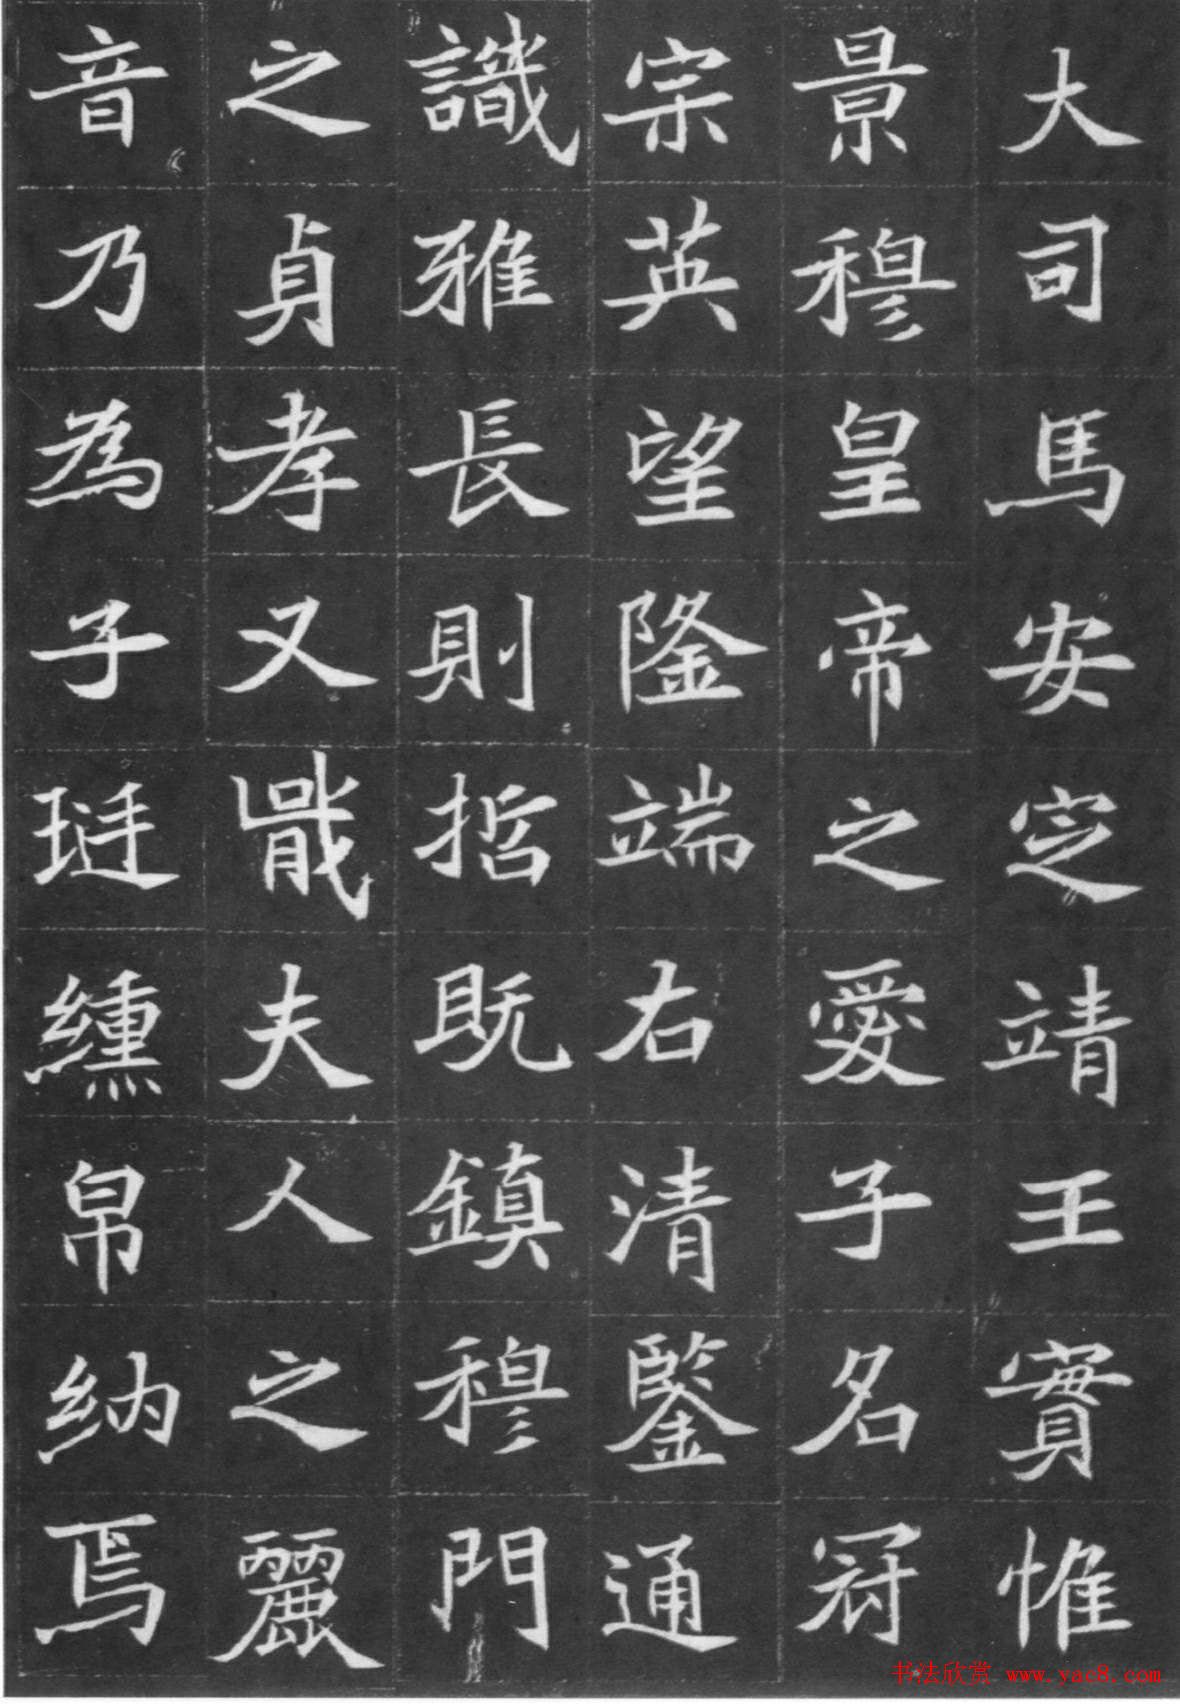 大司馬安定靖王實惟
景穆皇帝之愛子名冠
宗英望隆端右清鑒通
識雅長則哲既鎮穆門
之貞孝又戢夫人之麗
音乃為子琺纁帛納焉
书法欣赏 www.yac8.com